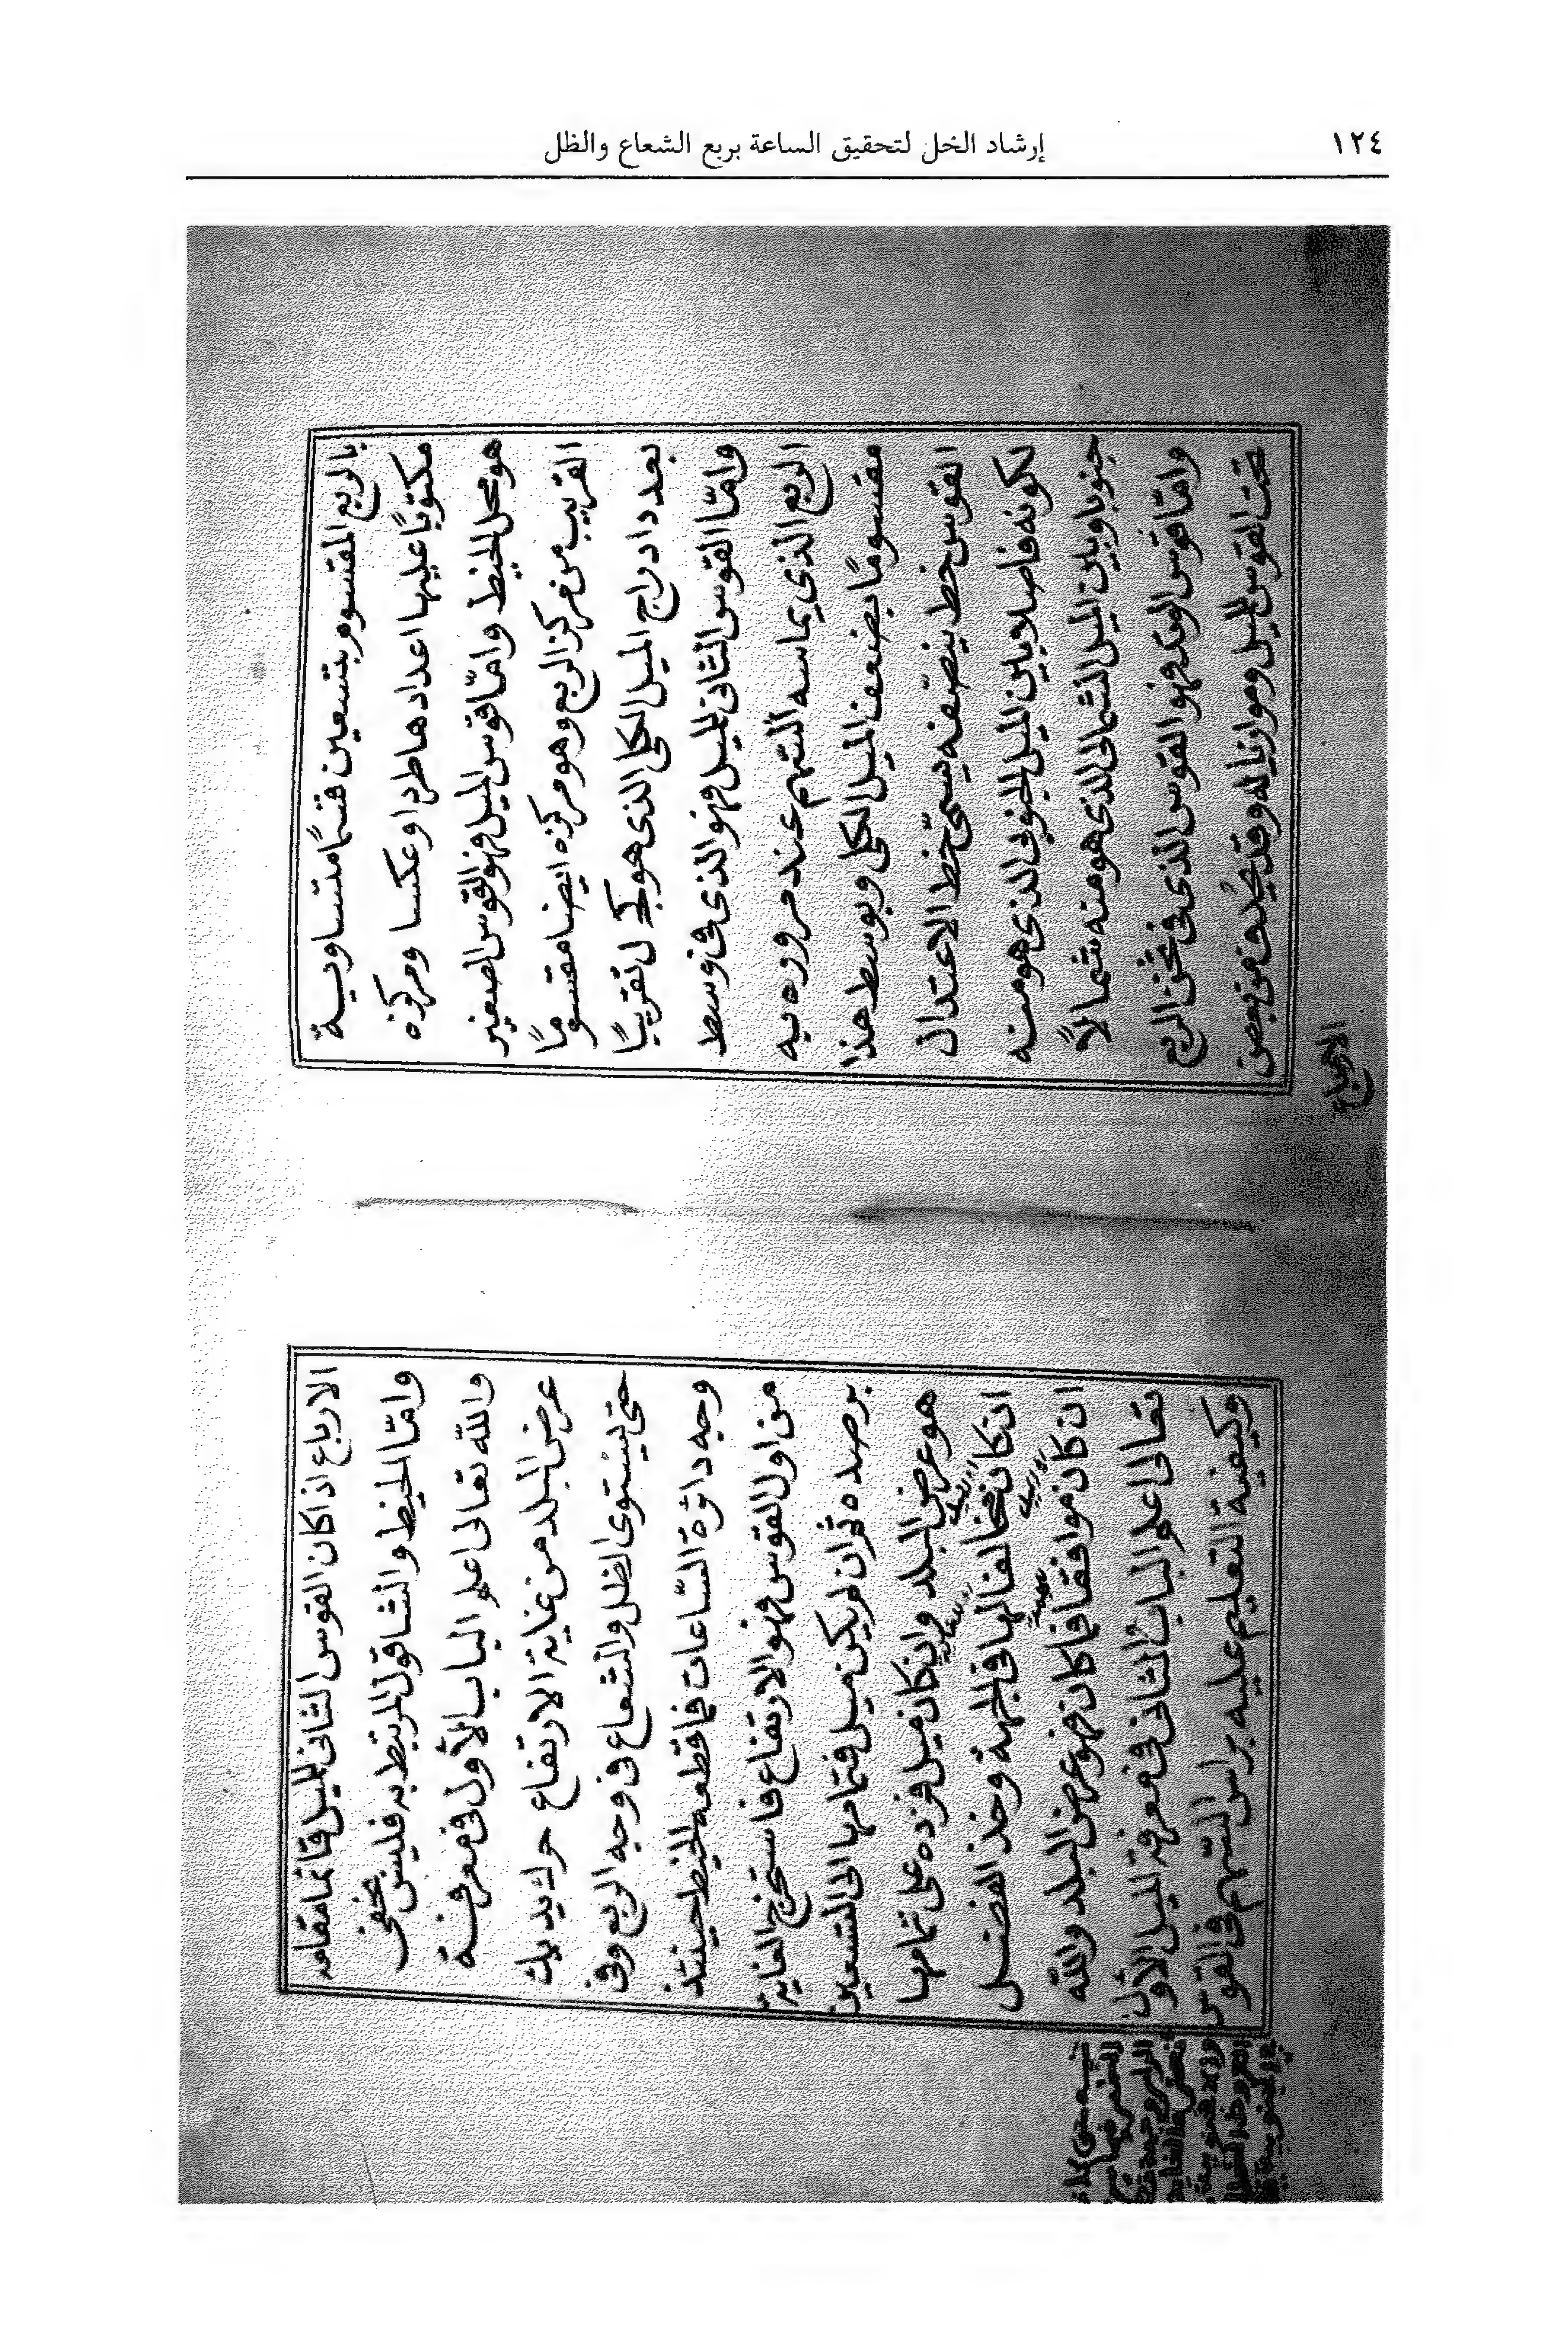 ١٢٤
إرشاد الخل لتحقيق الساعة بربع الشعاع والظل
بالربع المقسوم بتسعين قسمًا متساوية
مكتوبًا عليها اعدادها طردا وعكسا ومركزه
هو محل الخيط وامّا قوس الميل فهو القوس الصغير
القريب من مركز الربع وهو مركزه ايضا مقسومًا
بعدد ادراج الميل الكلى الذى هو كج ل تقريبًا
وامّا القوس الثانى للميل فهو الذى فى وسط
الربع الذى يماسه السّهم عند مروره به
مقسومًا بضعف الميل الكلى وبوسط هذا
القوس خط ينصّفه يسمّى خط الاعتدال
لكونه فاصلا بين الميل الجنوبى الذى هو منه
جنوبا وبين الميل الشمالى الذى هو منه شمالاً
وامّا قوس العكر فهو القوس الذى فى تخن الربع
تحت القوس للميل وموازيا له وقد يُحذف من بعض
الارباع
الارباع اذ اكان القوس الثانى للميل قائما مقامه
وامّا الخيط والشاقول المرتبط به فليس بخفى
والله تعالى اعلم الباب الأول فى معرفة
عرض البلد من غاية الارتفاع حرك يديك
حتى يستوى الظل والشعاع فى وجه الربع وفى
وجه دائرة السّاعات فما قطعه الخيط حينئذ
من اول القوس فهو الارتفاع فاستخرج الغاية
برصده ثم ان لم يكن ميل فتمامها الى التسعين
هو عرض البلد وان كان ميل فزده على تمامها
ان كان مخالفا لها فى الجهة وخذ الفضل
ان كان موافقا فما كان فهو عرض البلد والله
تعالى اعلم الباب الثانى فى معرفة الميل الأول
وكيفية التعليم عليه براس السّهم فى القوس